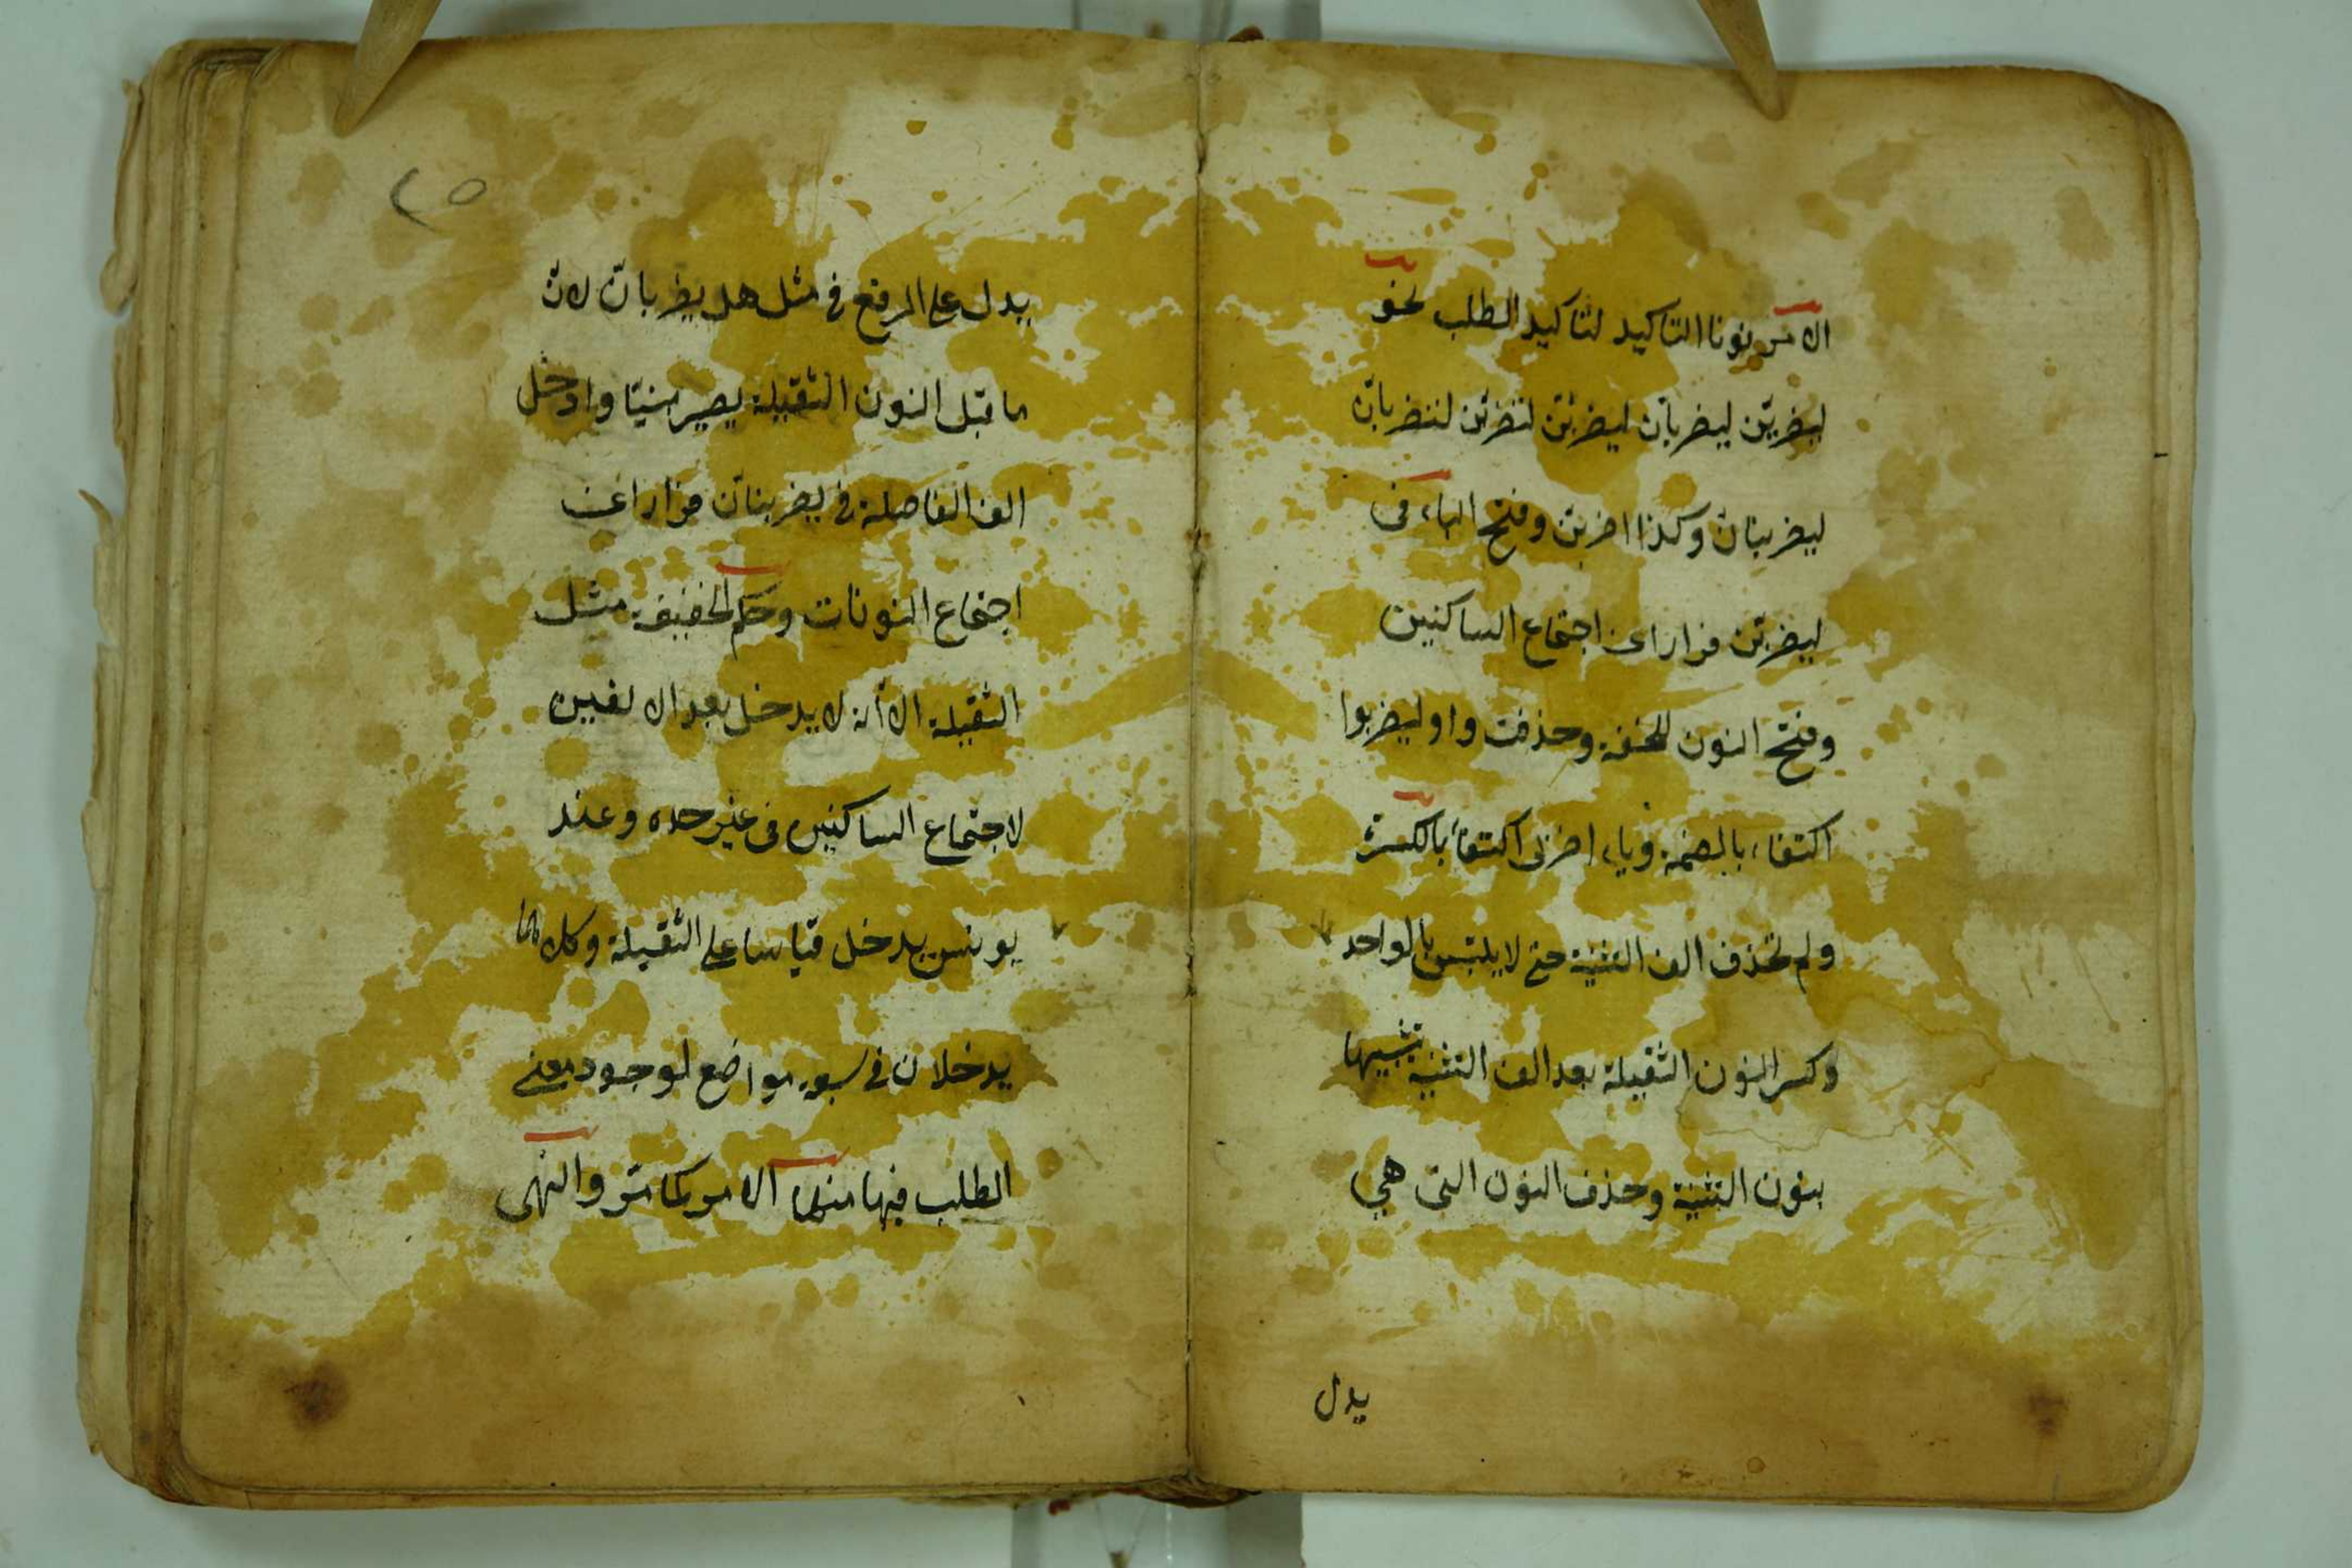 الامر نونا التاكيد لتاكيد الطلب نحو
ليضربّن ليضربانّ ليضربنّ لتضربن لتضربانّ
ليضربنان وكذا اضربن وفتح الباء فى
ليضربّن فرارا عن اجتماع الساكنين
وفتح النون للخفة وحذفت واو ليضربوا
اكتفاء بالضمة وياء اضربى اكتفاء بالكسرة
ولم تحذف الف التثنية حتى لا يلتبس بالواحد
وكسر النون الثقيلة بعد الف التثنية تشبيها
بنون التثنية وحذف النون التى هي
يدل
٢٥
يدل على الرفع فى مثل هل يضربانّ لانّ
ما قبل النون الثقيلة يصير مبنيّا وادخل
الف الفاصلة فى ليضربنانّ فرارا عن
اجتماع النونات وحكم الخفيفة مثل
الثقيلة الا أنه لا يدخل بعد الالفين
لاجتماع الساكنين فى غير حده وعند
يونس يدخل قياسا على الثقيلة وكلاهما
يدخلان فى سبعة مواضع لوجود معنى
الطلب فيها منها الامر كما مرّ والنهى